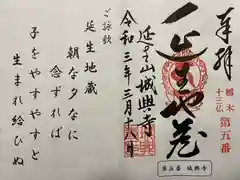 奉拝
栃木
十三仏 第五番
延生地蔵
延生山城興寺
令和三年三月十八日
第五番 城興寺
ご詠歌
延生地蔵
朝な夕なに
念ずれば
子をやすやすと
生まれ給ひぬ